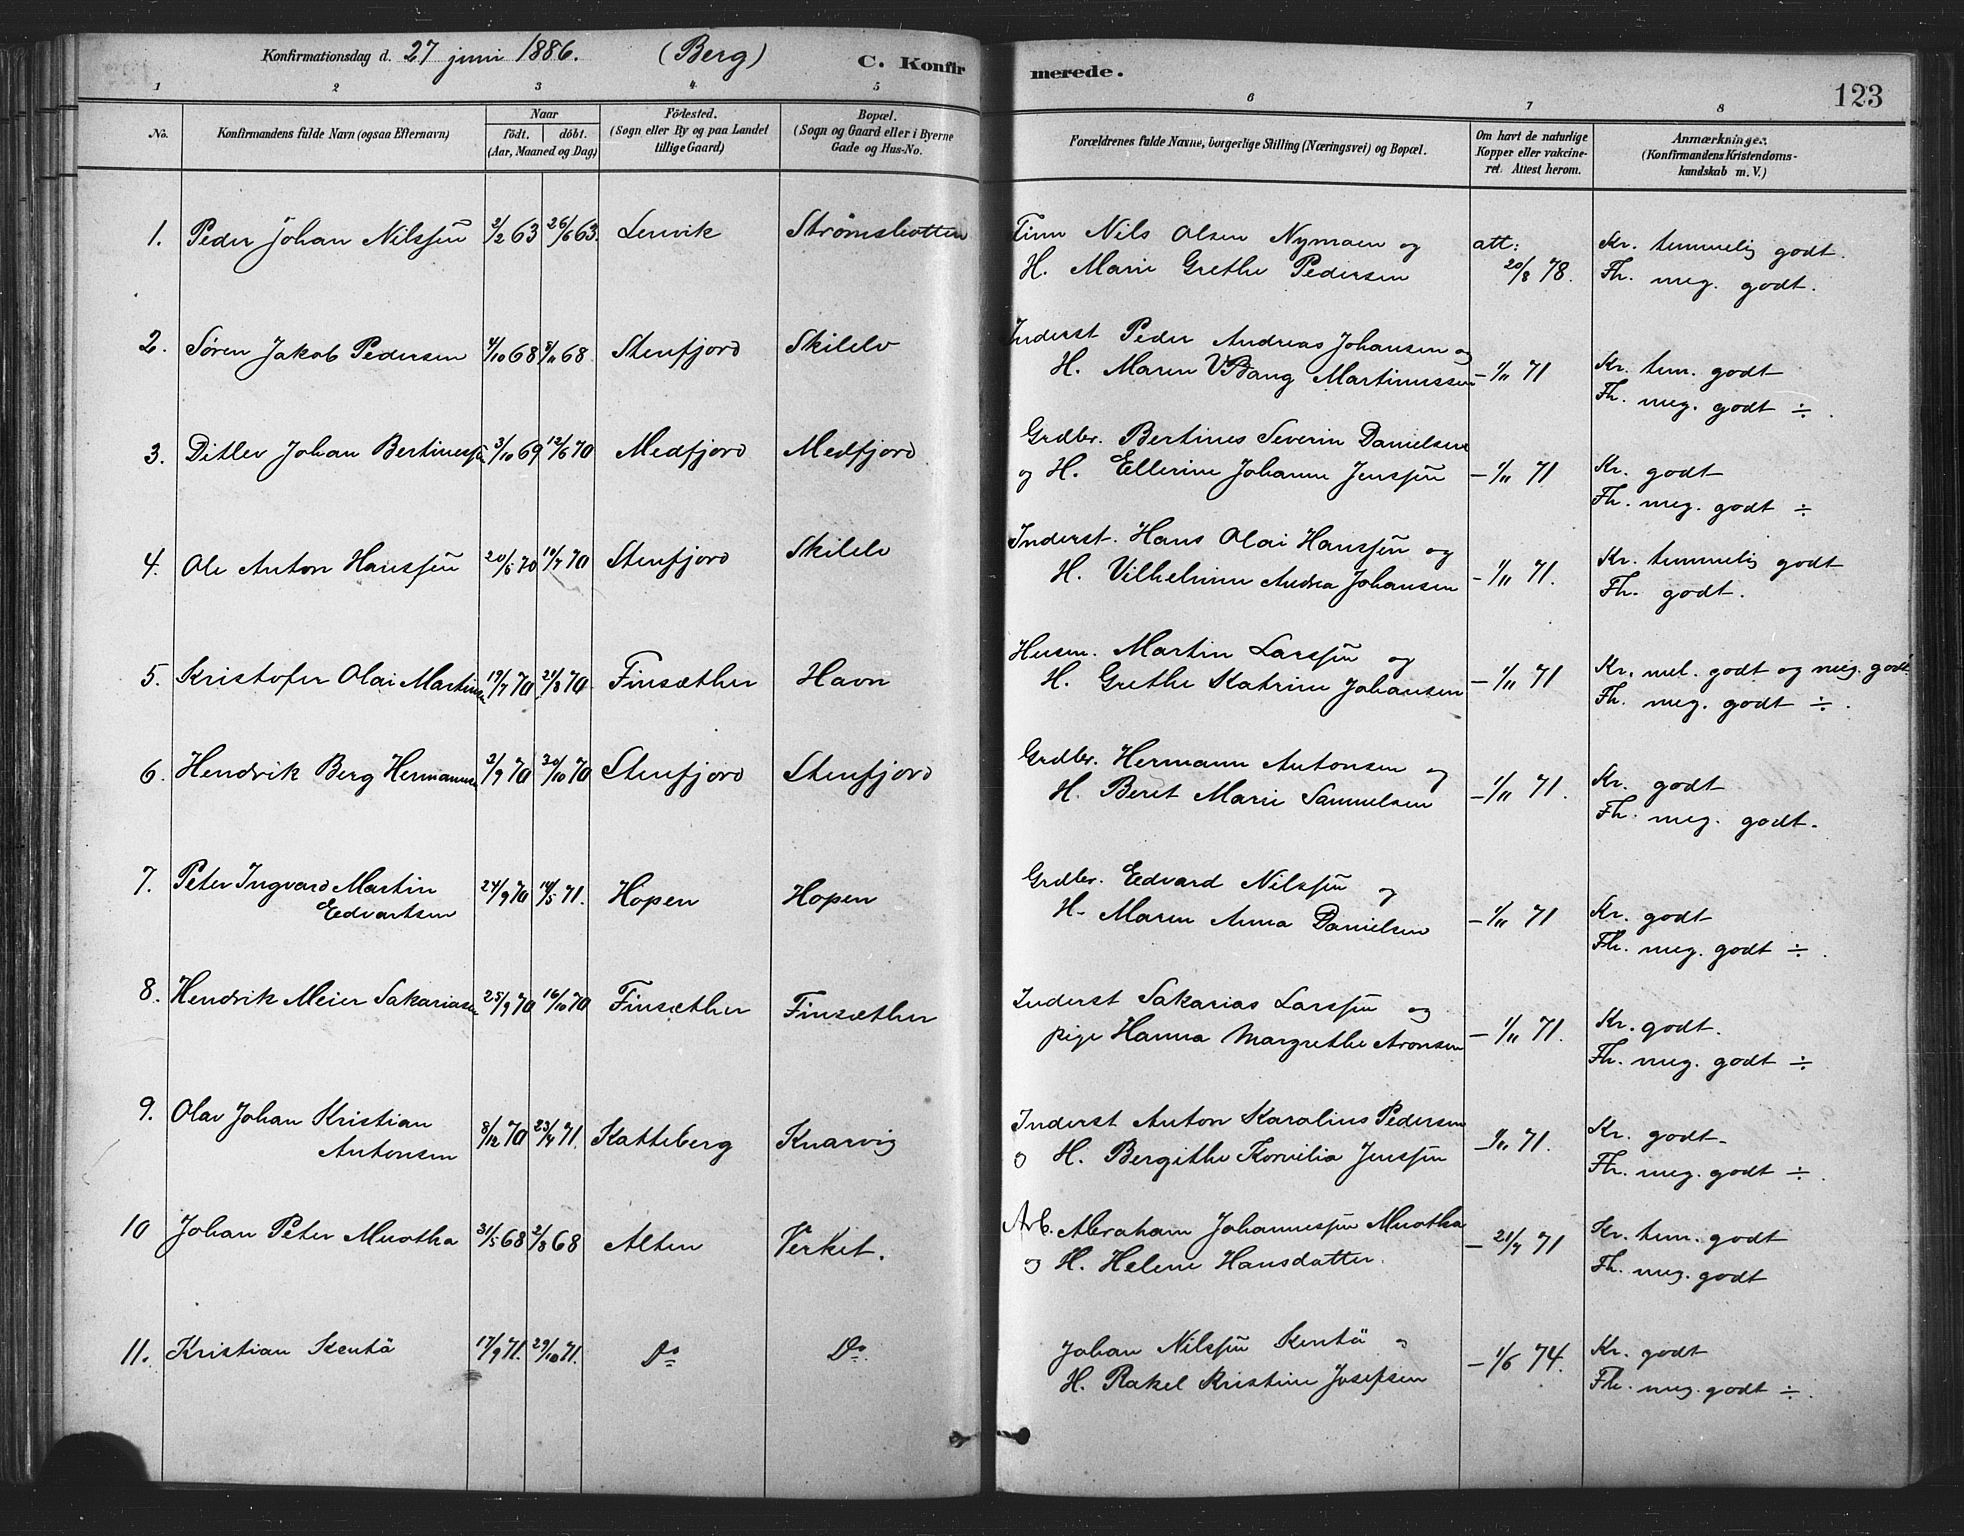 Konfirmationsdag d. 27 juni 1886. (Berg) C. Konfirmerede. 123
1 2 3 4 5 6 7 8
No. Konfirmandens fulde Navn (ogsaa Efternavn) Naar födt. döbt. (Aar, Maaned og Dag) Födested. (Sogn eller By og paa Landet tillige Gaard) Bopæl. (Sogn og Gaard eller i Byerne Gade og Hus-No. Forældrenes fulde Navne, borgerlige Stilling (Næringsvei) og Bopæl. Om havt de naturlige Kopper eller vakcineret. Attest herom. Anmærkninger. (Konfirmandens Kristendomskundskab m. V.)
1. Peder Johan Nilssen 2/2 63 26/6 63. Lenvik Strømsbotten Finn Nils Olsen Nymoen og att: Kr. temmelig godt.
H. Marie Grethe Pedersen 20/8 78. Fh. meg. godt.
2. Søren Jakob Pedersen 4/10 68 8/11 68. Stenfjord Skilelv Inderst Peder Andreas Johansen og
H. Maren Vang Martinussen - 1/11 71 Kr. tem. godt
Fh. meg. godt ÷.
3. Ditlev Johan Bertinessen 3/10 69 12/6 70 Medfjord Medfjord Grdbr. Bertines Severin Danielsen
og H. Ellerine Johanne Jenssen - 1/11 71. Kr. godt
Fh. meg. godt ÷
4. Ole Anton Hanssen 20/5 70 10/7 70 Stenfjord Skilelv Inderst. Hans Olai Hanssen og Kr. temmelig godt
H. Vilhelmine Andrea Johansen - 1/11 71. Fh. godt.
5. Kristofer Olai Martinsen 19/7 70 21/8 70 Finsæther Havn Husm. Martin Larssen og
H. Grethe Katrine Johansen - 1/11 71 Kr. mel. godt og meg. godt.
Fh. meg. godt ÷.
6. Hendrik Berg Hermannsen 2/9 70 30/10 70 Stenfjord Stenfjord Grdbr. Hermann Antonsen og
H. Beret Marie Samuelsen - 1/11 71. Kr. godt
Fh. meg. godt.
7. Peter Ingvard Martin Edvartsen 24/9 70 14/5 71. Hopen Hopen Grdbr. Edvard Nilssen og
H. Maren Anna Danielsen - 1/11 71 Kr. godt
Fh. meg. godt ÷.
8. Hendrik Meier Sakariasen 25/9 70 16/10 70 Finsæther Finsæther Inderst Sakarias Larssen og
pige Hanna Margrethe Aronsen - 1/11 71. Kr. godt.
Fh. meg. godt ÷
9. Olav Johan Kristian Antonsen 8/12 70 23/4 71. Katteberg Knarvig Inderst Anton Karolius Pedersen
og H. Bergithe Kornelia Jenssen - 1/11 71. Kr. godt.
Fh. meg. godt ÷.
10 Johan Peter Muotka 31/5 68 2/8 68 Alten Verket. Arb. Abraham Johannessen Muotka
og H. Helene Hansdatter. - 21/7 71 Kr. tem. godt
Fh. meg. godt
11. Kristian Kentä 17/9 71. 29/10 71. Do Do. Johan Nilssen Kentä og
H. Rakel Kristine Josefsen - 1/6 74. Kr. godt
Fh. meg. godt ÷.